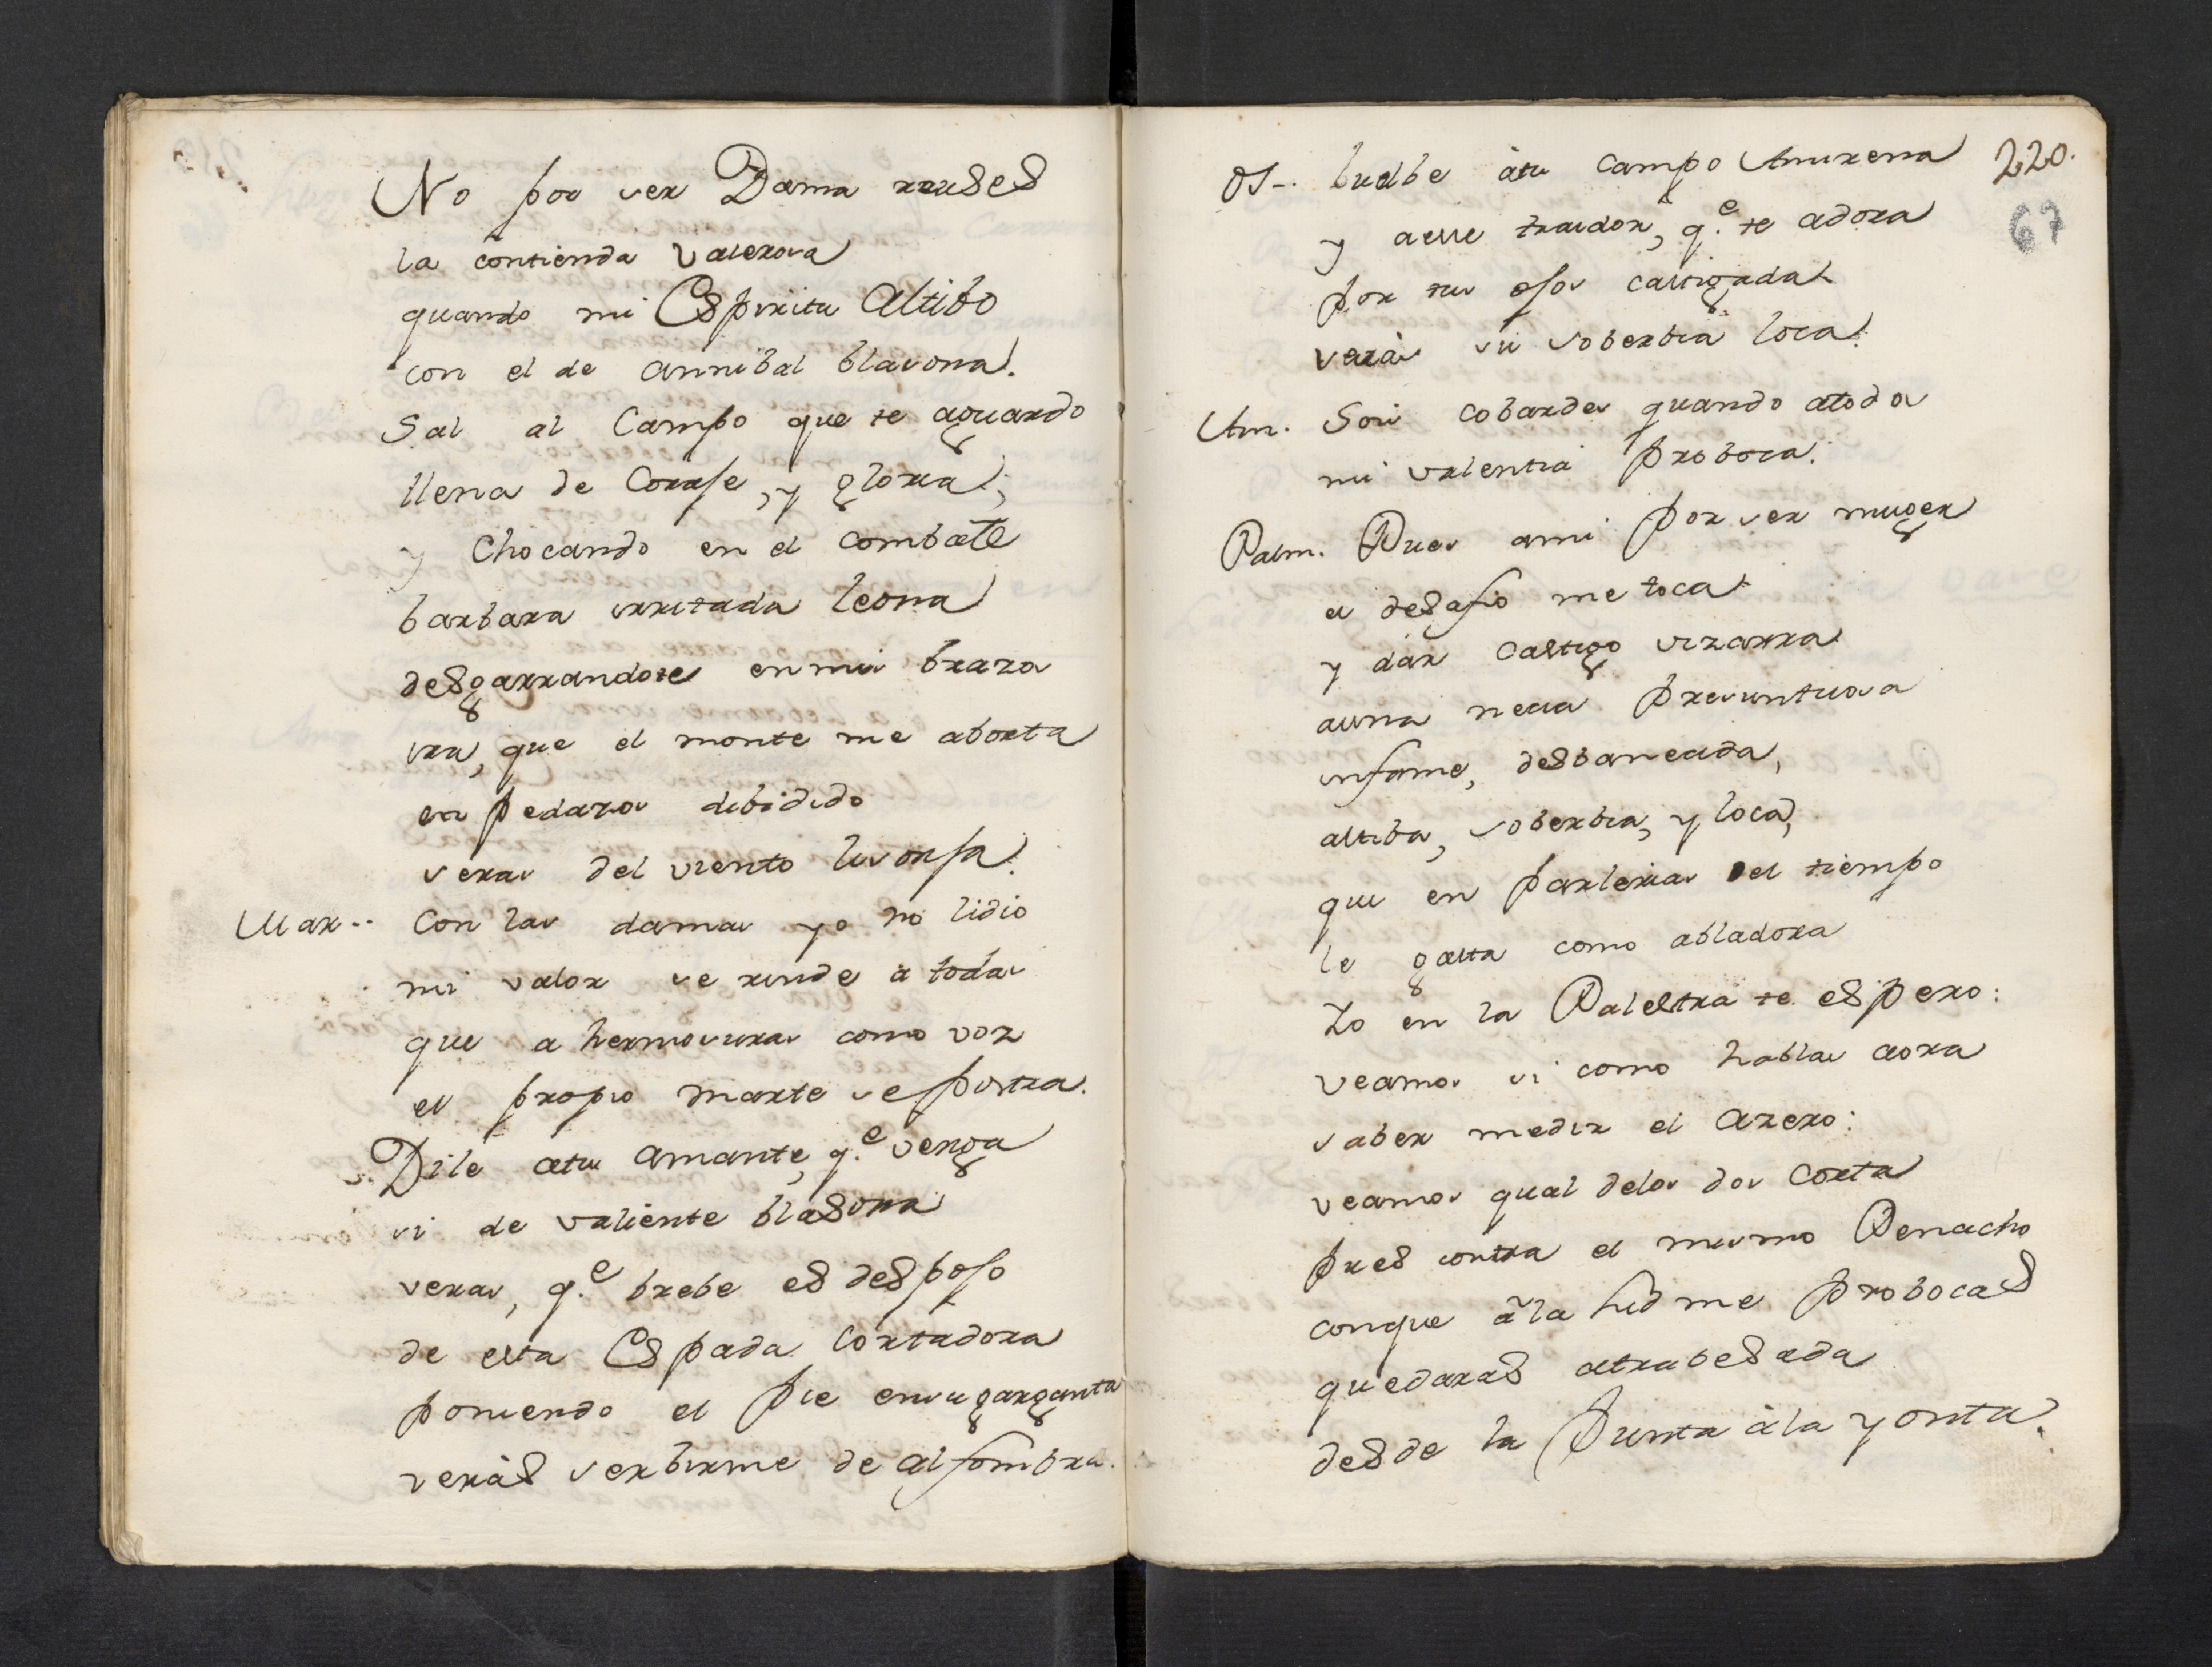 No por ser Dama reuses
la contienda valerosa
quando mi Espiritu Altibo
con el de annibal blasona.
Sal al Campo que te aguardo
llena de Corаje, y gloria;
y Chocando en el combate
barbara irritada leona
desgarrandote en mis brazos
ira, que el monte me aborta
en pedazos dibidido
veras del viento lisonja.
Mar.. Con las damas yo no lidio
mi valor se rinde à todas
que a hermosuras como vos
el propio marte se postra.
Dile atu amante, q.e venga
si de valiente blasona
veras, q.e brebe es despojo
de esta Espada Cortadora
poniendo el pie en su garganta
veràs serbirme de alfombra.
220.
67
Os-. buelbe àtu Campo Amirena
y a esse traidor, q.e te adora
por tus ojos castigada
veràs su soberbia loca.
Am. Sois cobardes quando atodos
mi valentia proboca.
Palm. Pues ami por ser muger
el desafio me toca
y dàr castigo vizarra
auna necia presuntuosa
infame, desbaneada,
altiba, soberbia, y loca,
que en parlerias el tiempo
le gasta como abladora
Yo en la Palestra te espero:
veamos si como hablas aora
sabes medir el azero:
veamos qual delos dos Corta
pues contra el mismo Penacho
conque àla lid me probocas
quedaras atrabesada
desde la Punta àla yonta.